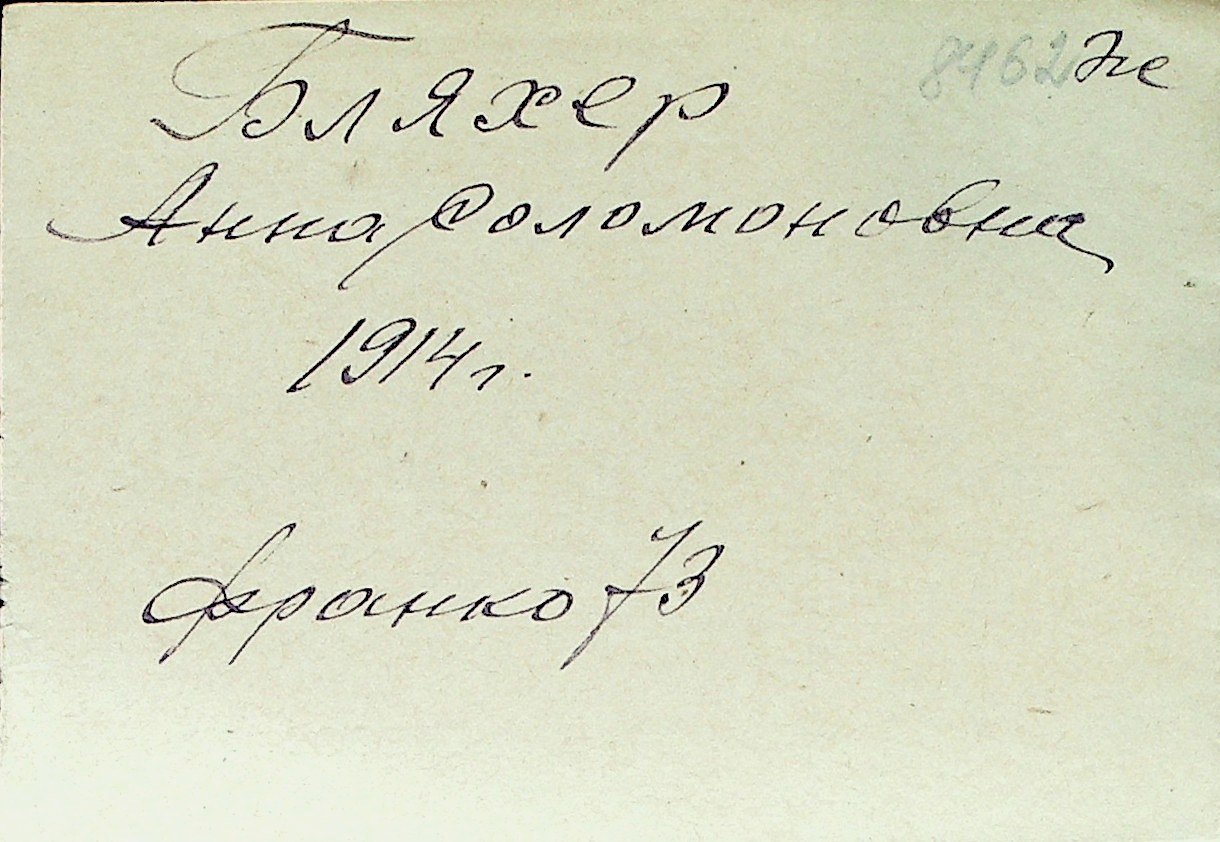 8462 Не
Бляхер
Анна Соломоновна
1914 г.
Франко 73